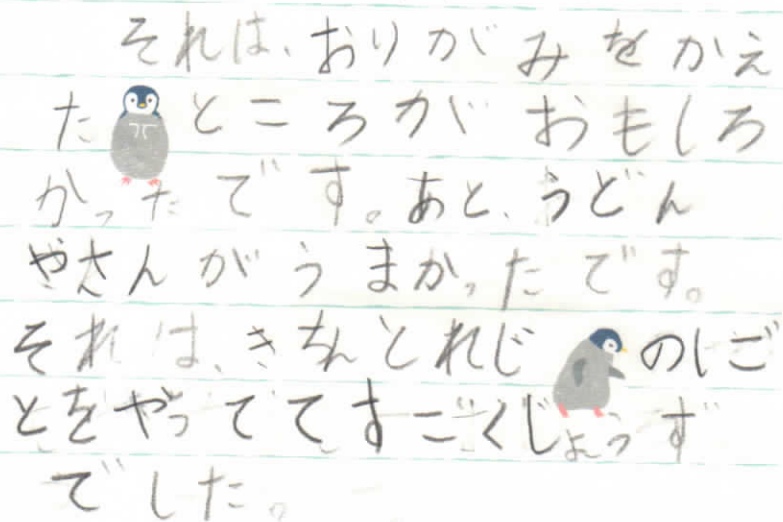 それは、おりがみをかえ
たところがおもしろ
かったです。あと、うどん
やさんがうまかったです。
それは、きちんとれじのしご
とをやっててすごくじょうず
でした。